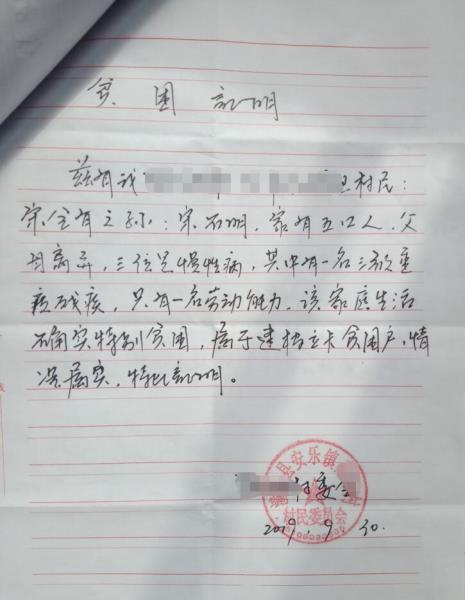 贫困证明
兹有我 村民：
宋全有之孙：宋石明，家有五口人，父
母离异，三位是慢性病，其中有一名三级重
症残疾，只有一名劳动能力，该家庭生活
确实特别贫困，属于建档立卡贫困户，情
况属实，特此证明。
县安乐镇
村委会
村民委员会
2019.9.30.